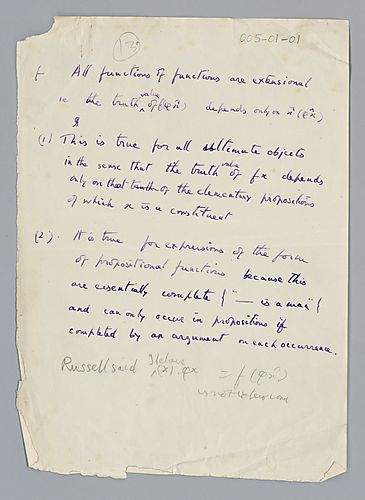 005-01-01
(13)
f. All functions of functions are extensional
ie the truth value of f(φx̂) depends only on x̂(φx̂)
&
(1) This is true for all ultimate objects
in the sense that the truth value of fx depends
only on that truth of the elementary propositions
of which x is a constituent
(2). It is true for expressions of the form
of propositional functions because this
are essentially complete { "— is a man" {
and can only occur in propositions if
completed by an argument on each occurrence.
Russell said I believe (x).φx = f(φx̂)
is not extensional